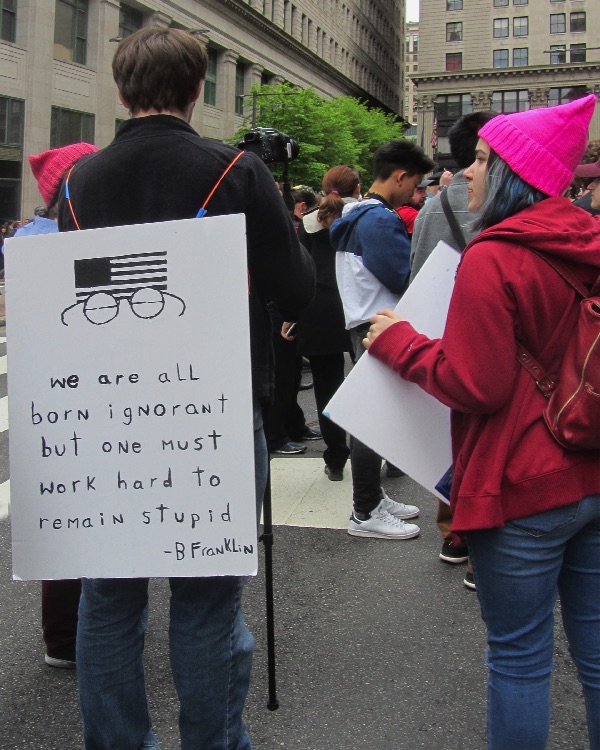 we are all
born ignorant
but one must
work hard to
remain stupid
-B Franklin